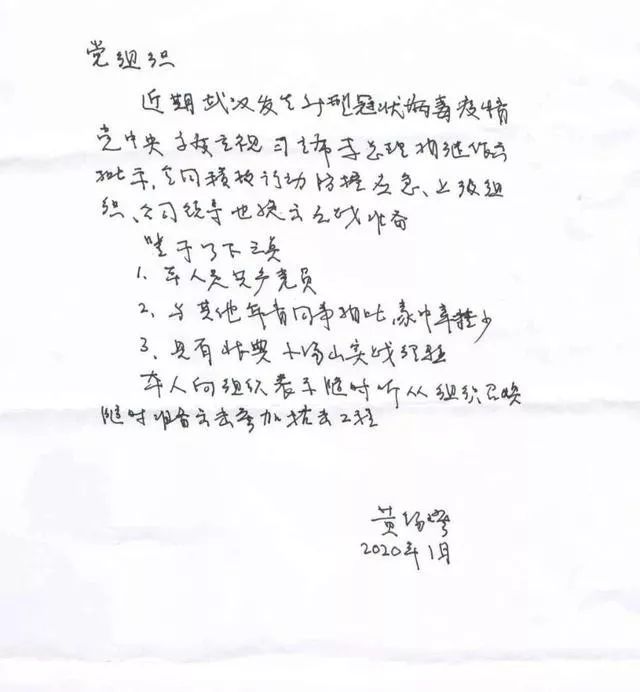 党组织
近期武汉发生新型冠状病毒疫情
党中央高度重视 习主席 李总理相继作出
批示,全国积极行动 防控应急、上级组
织、公司领导也按立应战准备
鉴于以下三点
1. 本人是共产党员
2. 与其他年青同事相比,家中牵挂少
3. 具有非典 小汤山实战经验
本人向组织表示随时听从组织召唤
随时准备出去参加抗击工程
2020年1月